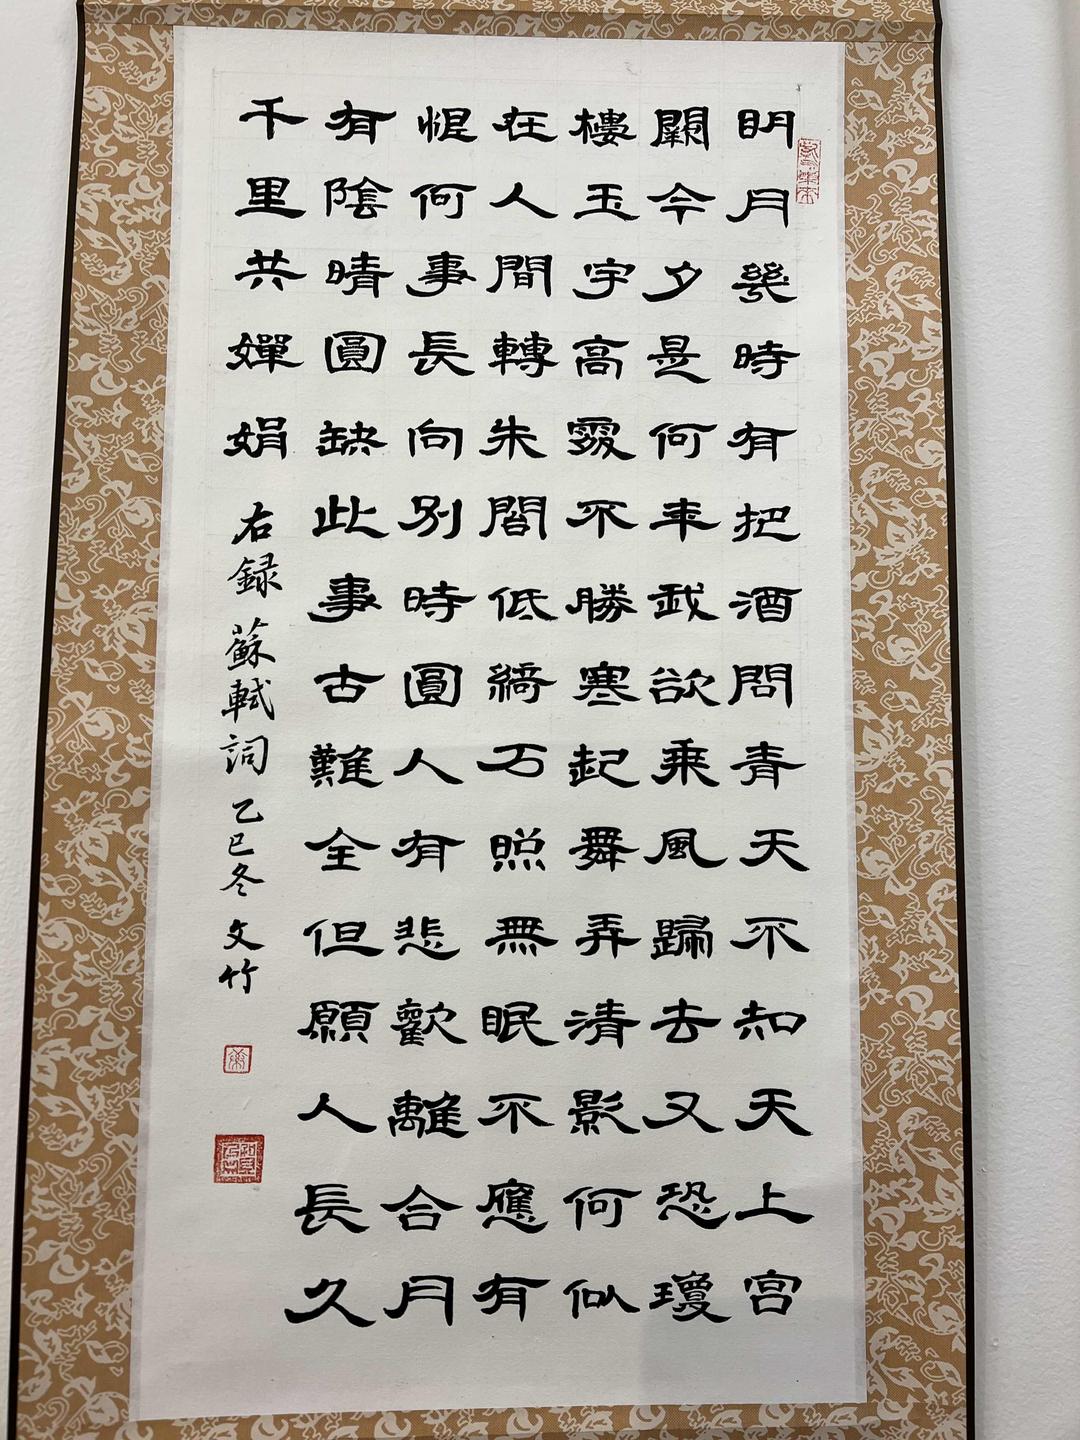 明月幾時有把酒問青天不知天上宮
闕今夕是何年我欲乘風歸去又恐瓊
樓玉宇高處不勝寒起舞弄清影何似
在人間轉朱閣低綺戶照無眠不應有
恨何事長向別時圓人有悲歡離合月
有陰晴圓缺此事古難全但願人長久
千里共嬋娟 右録蘇軾詞 乙巳冬 文竹